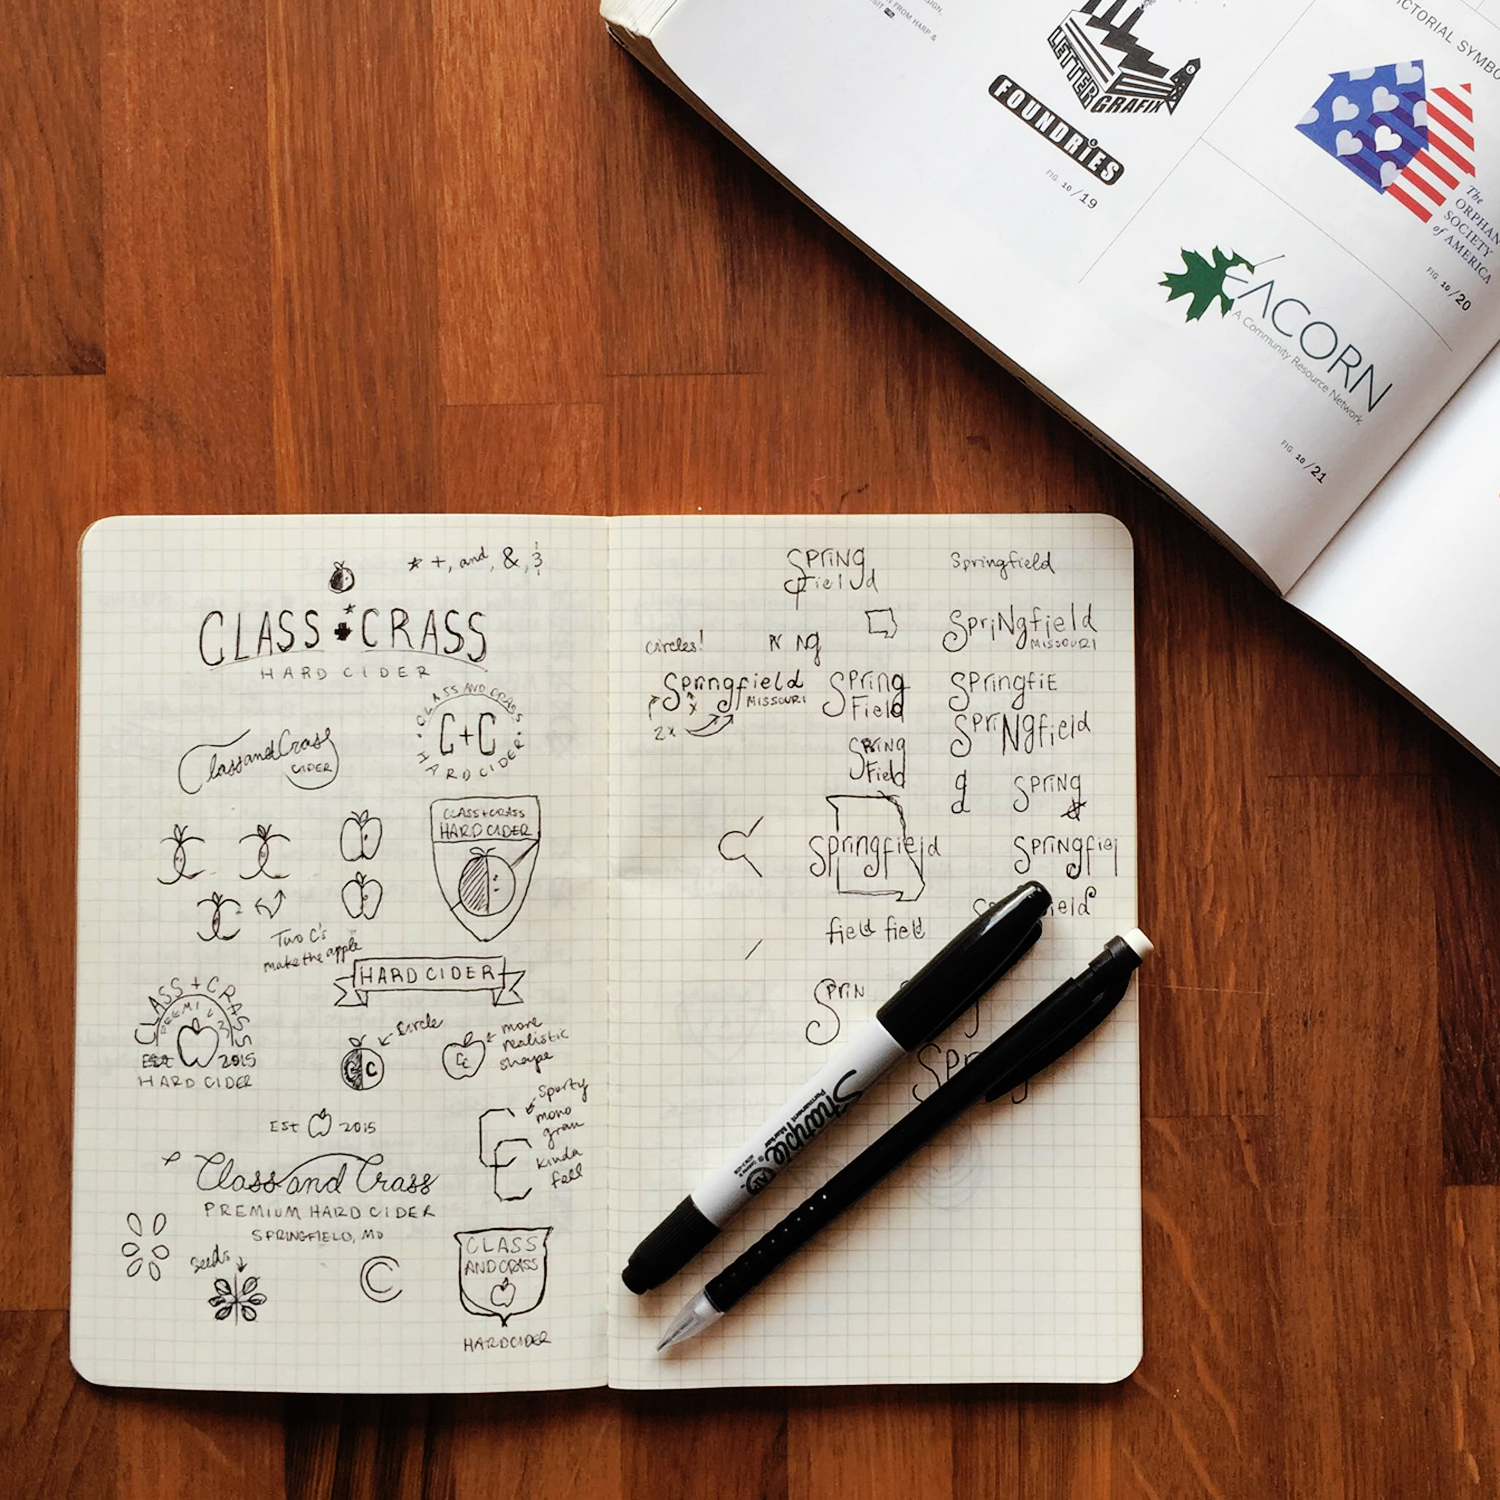 FROM HARP &
LETTER GRAFIX
FOUNDRiES
FIG. 10/19
The
ORPHAN
SOCIETY
of AMERICA
FIG. 10/20
ACORN
A Community Resource Network
FIG. 10/21
* +, and, &,
CLASS + CRASS
HARD CIDER
CLASS AND CRASS
C+C
HARD CIDER
Class and Crass
CIDER
CLASS+CRASS
HARD CIDER
Two C's
make the apple
HARD CIDER
CLASS + CRASS
PREMIUM
EST 2015
HARD CIDER
circle
C
more
realistic
shape
CC
EST 2015
Sporty
mono
gram
kinda
feel
Class and Crass
PREMIUM HARD CIDER
SPRINGFIELD, MO
Seeds
CLASS
AND CRASS
HARD CIDER
SPRiNg
Field
d
Springfield
circles!
N Ng
SpriNgfield
MISSOURI
Springfield
MISSOURI
2x
SPRiNg
Field
SPringfiE
SpriNgfield
SPRiNg
Field
g
SPRiNg
Springfield
SPRiNgfiel
field field
SPRiN
Sharpie
Permanent Marker